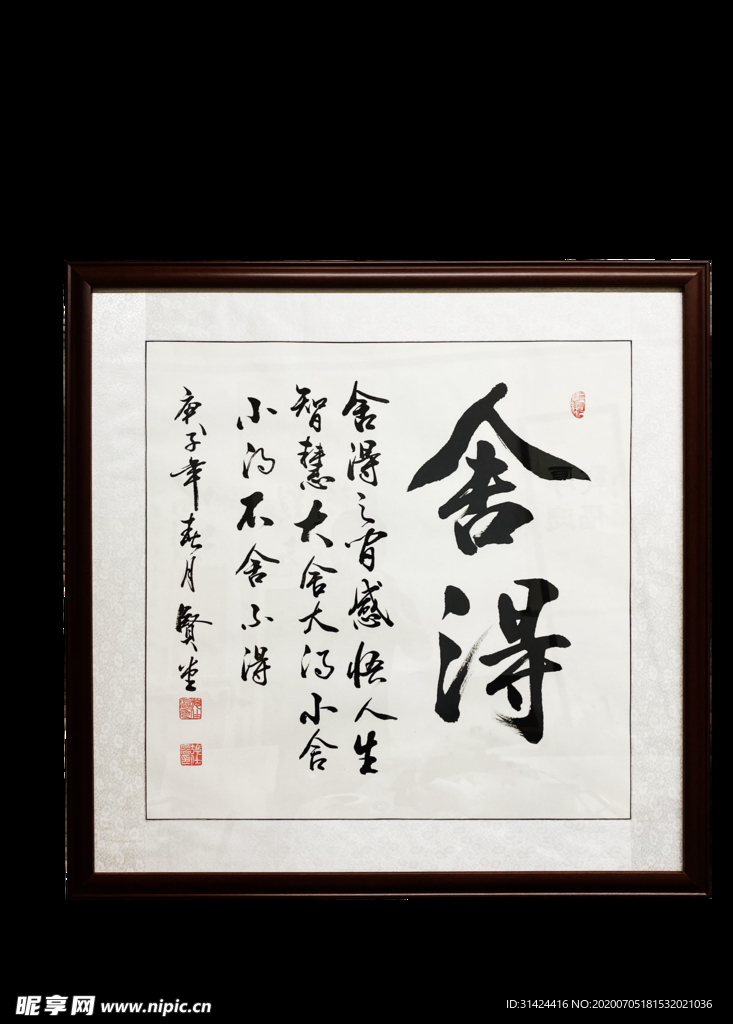 舍得
舍得之间感悟人生
智慧大舍大得小舍
小得不舍不得
庚子年春月贤堂
昵享网 www.nipic.cn
ID:31424416 NO:20200705181532021036